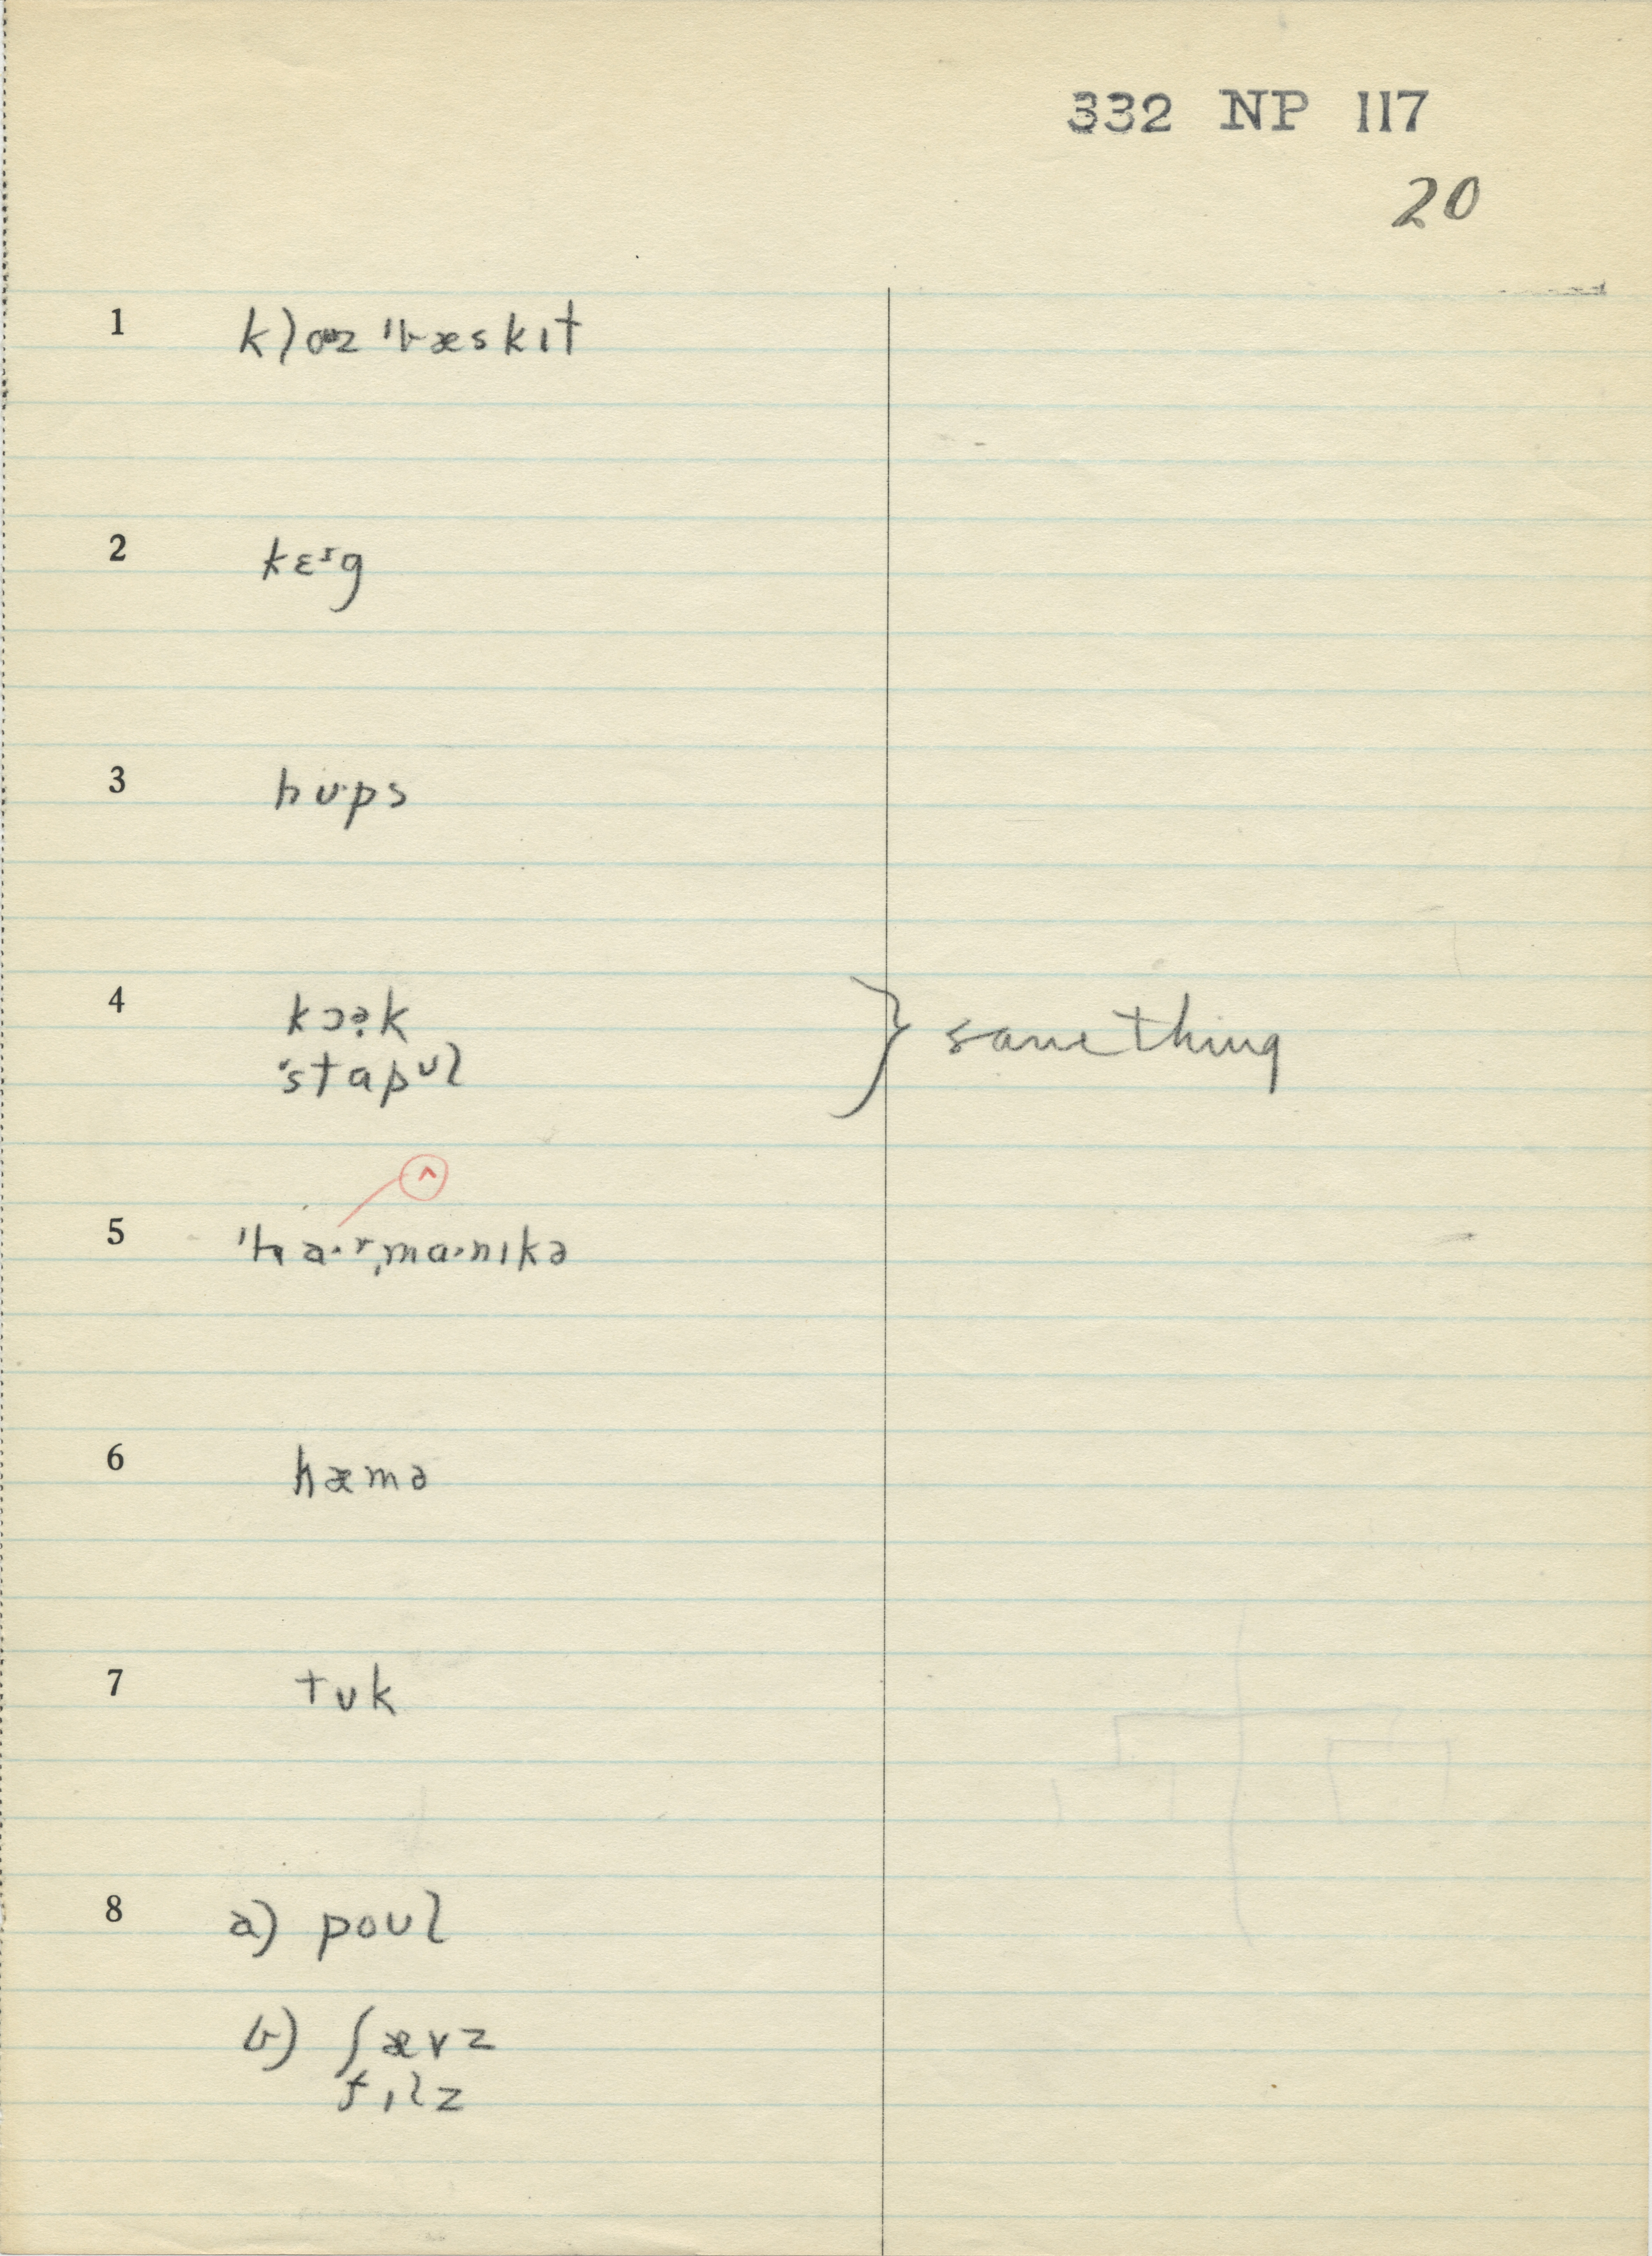 332 NP 117
20
1 kloʊz ˈbæskɪt
2 kɛᶦg
3 hʊ·ps
4 kɔə̣k
ˈstɑpʊl
} same thing
^
5 ˈha·ʳˌmɑ·nɪkə
6 hæmə
7 tʊk
8 a) poʊl
b) ʃævz
fɪlz